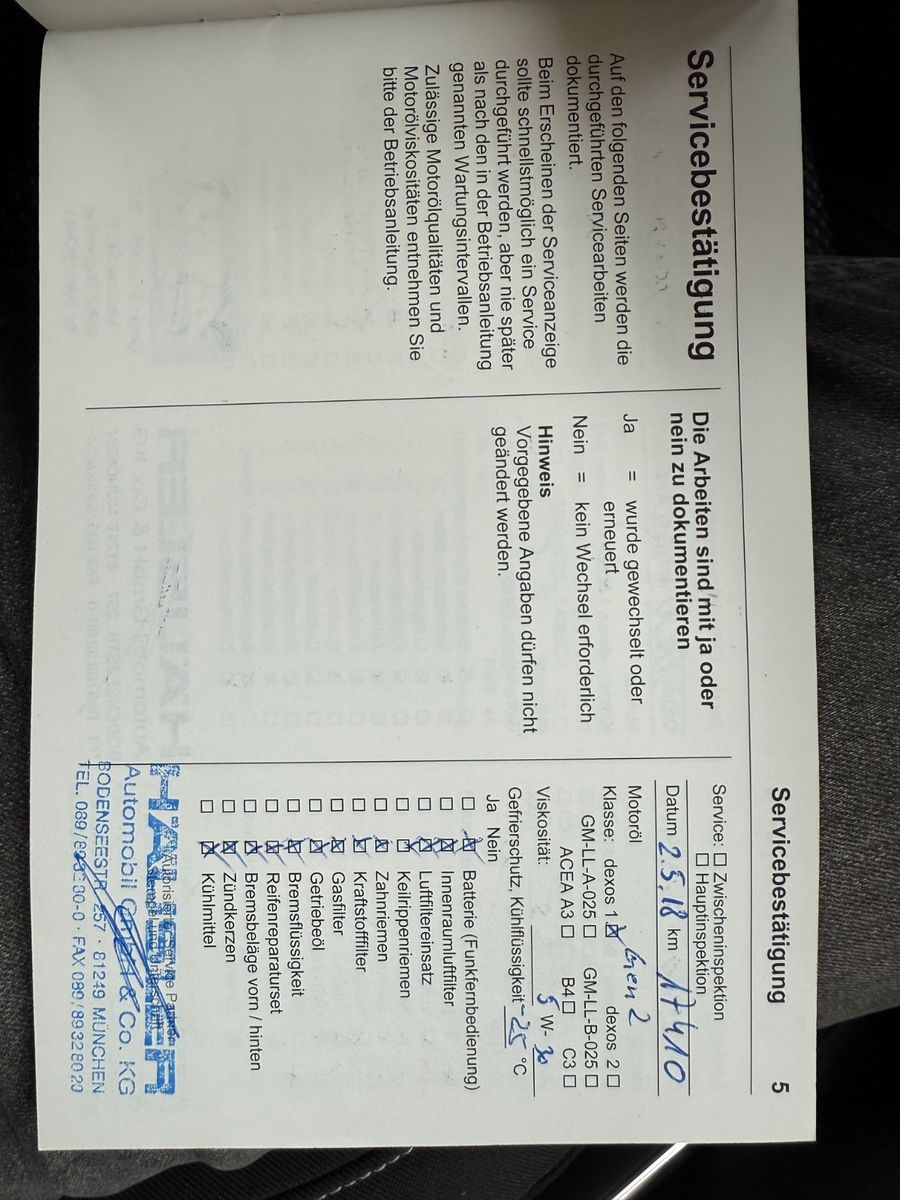 Servicebestätigung
5
Servicebestätigung
Auf den folgenden Seiten werden die
durchgeführten Servicearbeiten
dokumentiert.
Beim Erscheinen der Serviceanzeige
sollte schnellstmöglich ein Service
durchgeführt werden, aber nie später
als nach den in der Betriebsanleitung
genannten Wartungsintervallen.
Zulässige Motorölqualitäten und
Motorölviskositäten entnehmen Sie
bitte der Betriebsanleitung.
Die Arbeiten sind mit ja oder
nein zu dokumentieren
Ja = wurde gewechselt oder
erneuert
Nein = kein Wechsel erforderlich
Hinweis
Vorgegebene Angaben dürfen nicht
geändert werden.
Service: ☐ Zwischeninspektion
☐ Hauptinspektion
Datum 2.5.18 km 17410
Motoröl Gen 2
Klasse: dexos 1 ☒ dexos 2 ☐
GM-LL-A-025 ☐ GM-LL-B-025 ☐
ACEA A3 ☐ B4 ☐ C3 ☐
Viskosität: 5 W- 30
Gefrierschutz, Kühlflüssigkeit -25 °C
Ja Nein
☐ ☒ Batterie (Funkfernbedienung)
☐ ☒ Innenraumluftfilter
☐ ☒ Luftfiltereinsatz
☐ ☒ Keilrippenriemen
☐ ☒ Zahnriemen
☐ ☒ Kraftstofffilter
☐ ☒ Gasfilter
☐ ☒ Getriebeöl
☐ ☒ Bremsflüssigkeit
☐ ☒ Reifenreparaturset
☐ ☒ Bremsbeläge vorn / hinten
☐ ☒ Zündkerzen
☐ ☒ Kühlmittel
HÄUSLER
Automobil GmbH & Co. KG
BODENSEESTR. 257 · 81249 MÜNCHEN
FAX 089/89328020